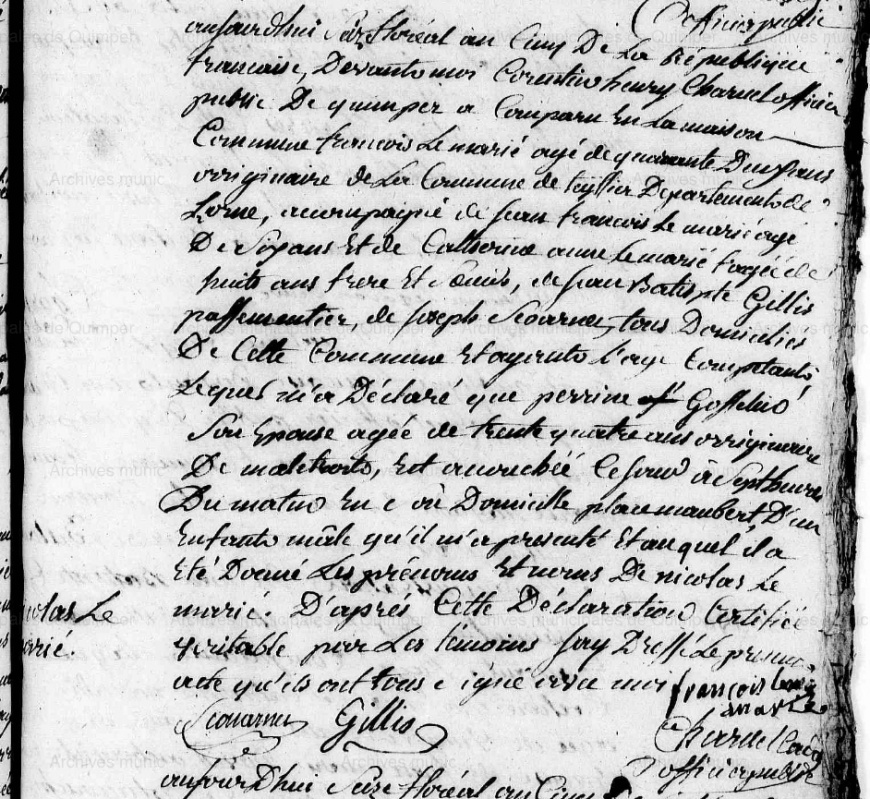 officier public
aujourdhui Seize floréal an Cinq De La République
francaise, Devant moi Corentin henry Charuel officier
public De quimper a Comparu En La maison
Commune francois Le marié agé de quarante Deux ans
orriginaire de La Commune de Departement de
Lorne, accompagné de jean francois Le marié agé
De Six ans Et de Catherine anne Le marié agée de
huit ans frere Et Soeur, de jean Batispte Gillis
passementier, de joseph Scouarnec, tous Domiciliés
De Cette Commune Et ayant L'age Competant,
Lequel m'a Déclaré que perrine Gosselin
Son Epouse agée de trente quatre ans orriginaire
De malétroit, Est accouchéé Ce jour à Sept heures
Du matin En son Domicille place maubert, D'un
Enfant mâle qu'il m'a présenté Et auquel il a
Eté Donné Les prénoms Et noms De nicolas Le
marié. D'apres Cette Déclaration Certifiée
véritable par Les temoins jay Dressé Le present
acte qu'ils ont tous signé avec moi
nicolas Le
marié.
francois le
marié
Scouarnec Gillis
Charuel
officier public
aujourD'hui Seize floréal an Cinq
Archives municipales de Quimper